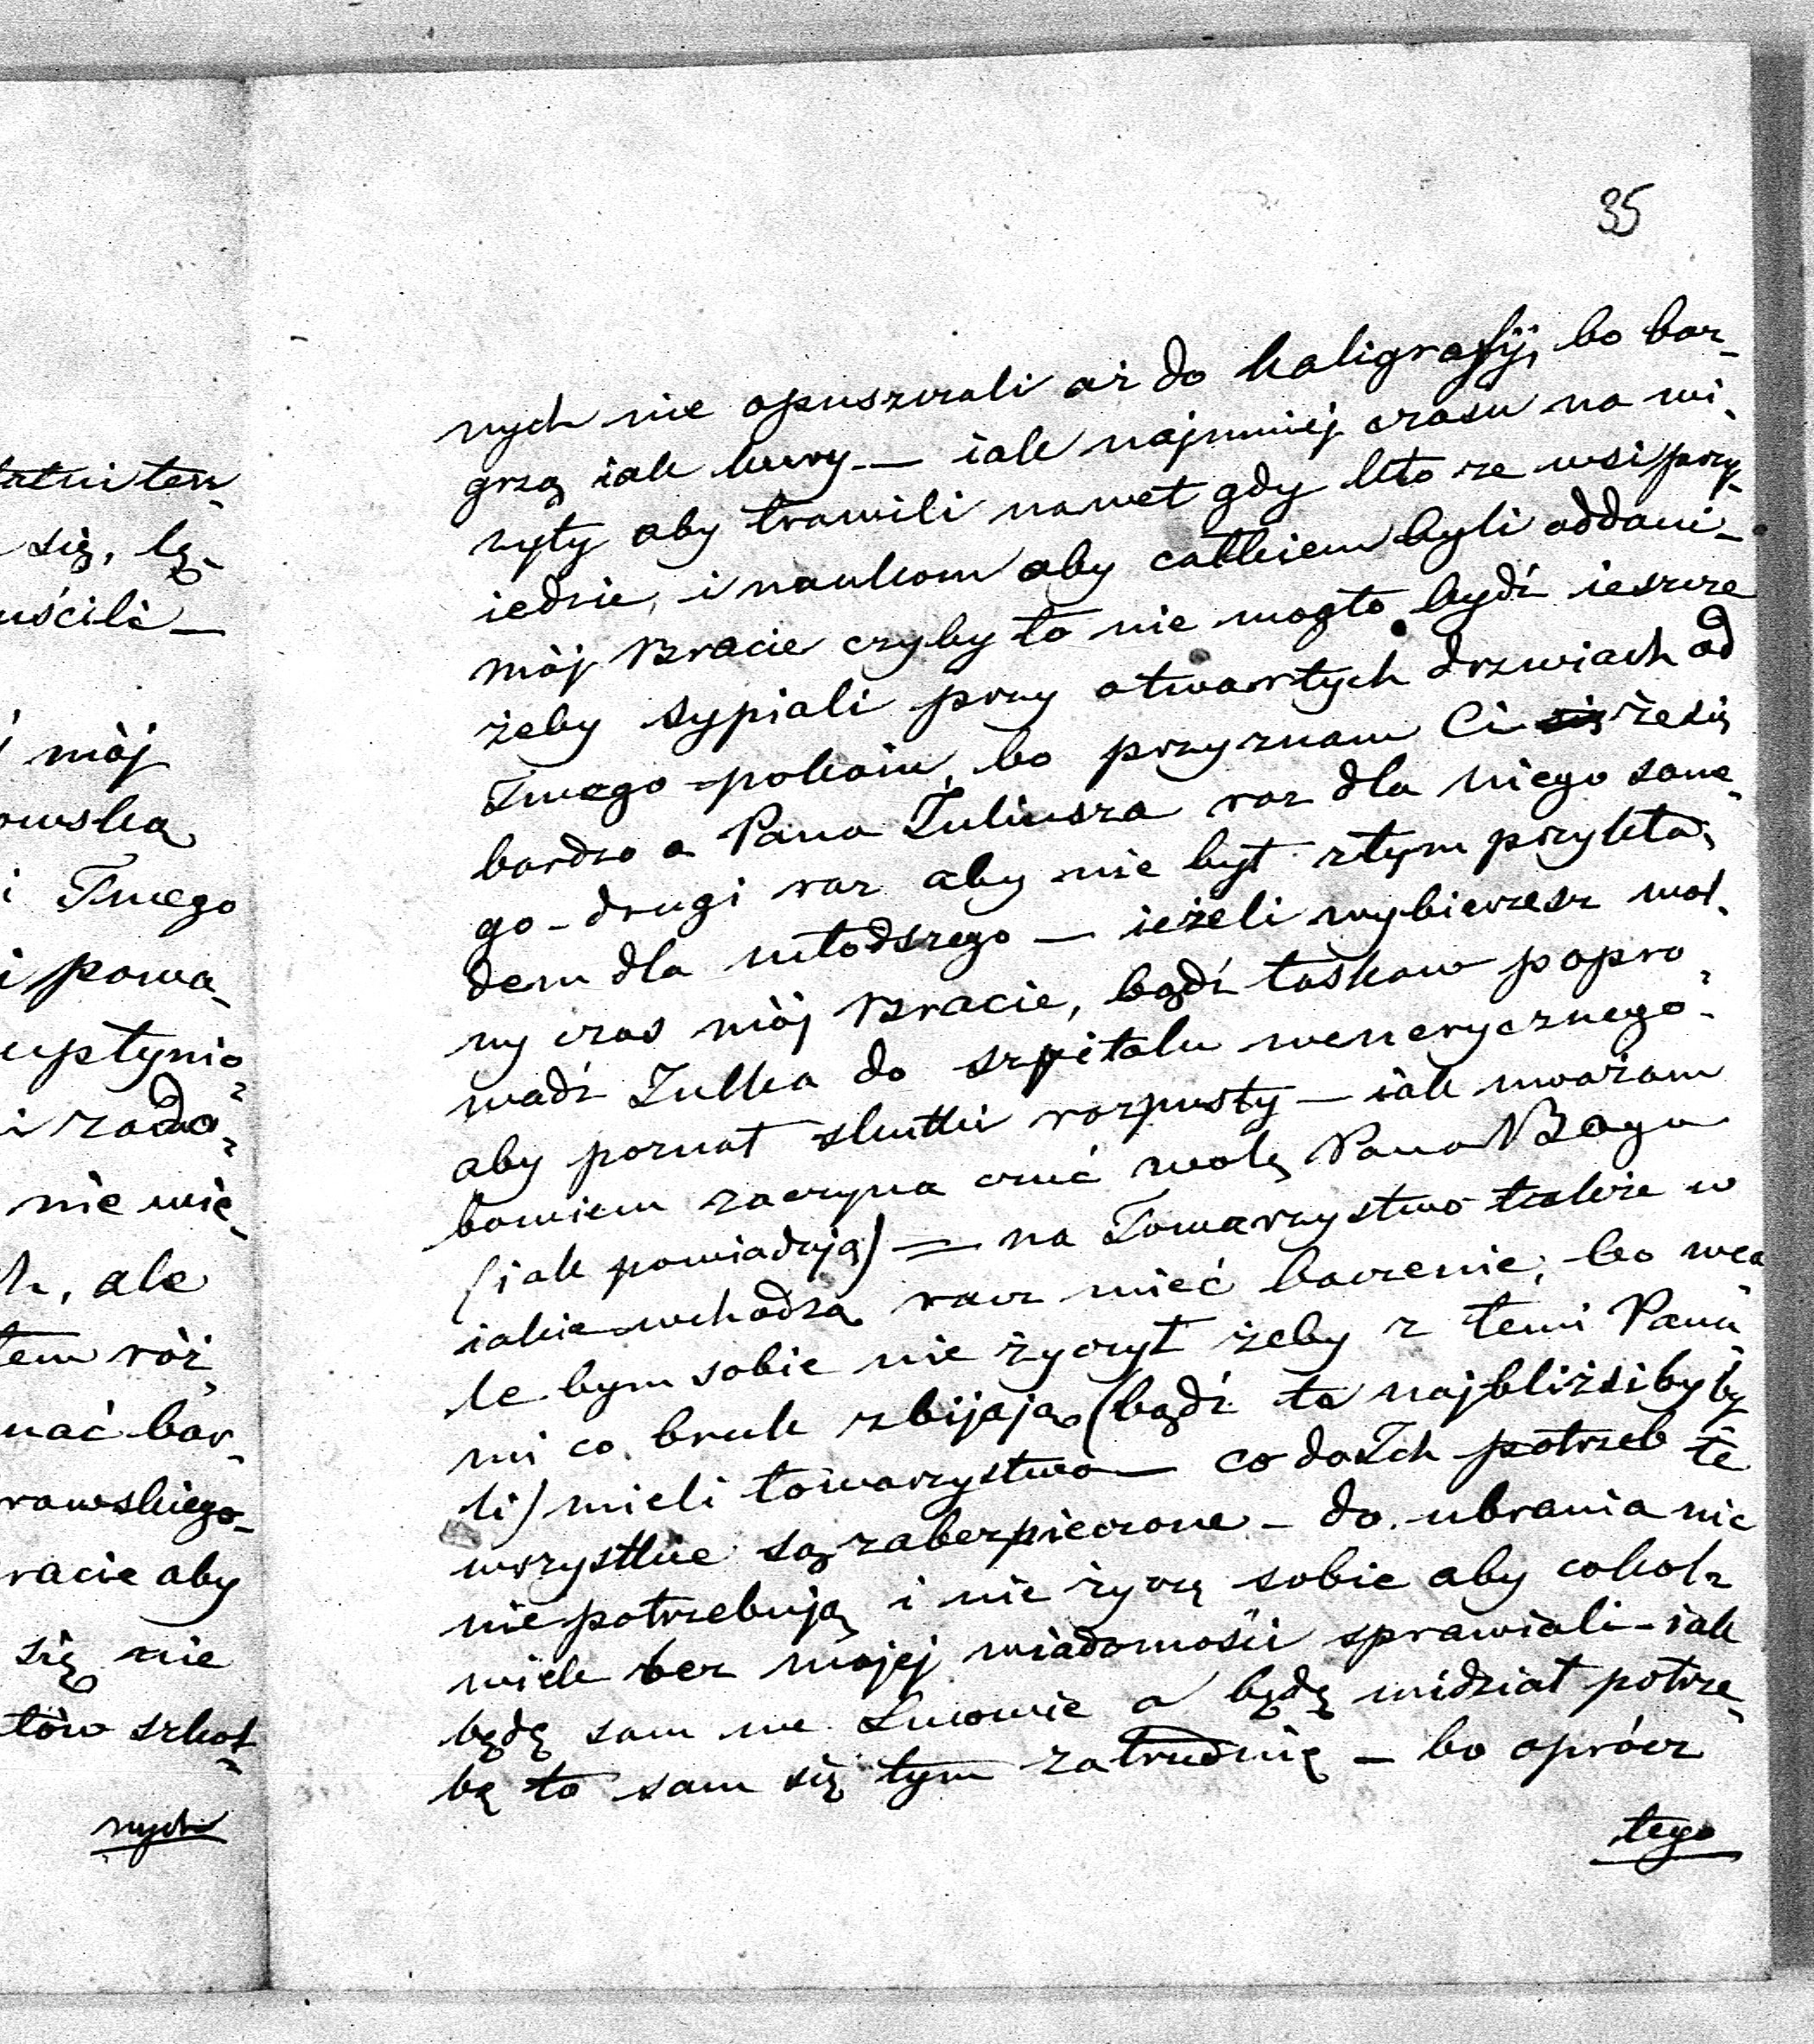 35
nych nie opuszczali aż do kaligrafji, bo baz-
grzą iak kury — iak najmniej czasu na wi-
zyty aby trawili nawet gdy kto ze wsi przy-
iedzie, i naukom aby całkiem byli oddani —
mój Bracie czyby to nie mogło bydź ieszcze
żeby sypiali przy otwartych drzwiach od
Twego pokoiu, bo przyznam Ci się że się
bardzo o Pana Juliusza raz dla niego same-
go – drugi raz aby nie był złym przykła-
dem dla młodszego — ieżeli wybierzesz wol-
ny czas mój Bracie, bądź łaskaw popro-
wadź Julka do szpitalu wenerycznego -
aby poznał skutki rozpusty — iak uważam
bowiem zaczyna czuć wolę Pana Boga
(iak powiadają) — na Towarzystwo także w
iakie wchodzą racz mieć baczenie, bo wca-
le bym sobie nie życzył żeby z temi Pana-
mi co bruk zbijają (bądź to najbliżsi byby
li) mieli towarzystwo — co do Ich potrzeb te
wszystkie są zabezpieczone – do ubrania nic
nie potrzebują i nie życzę sobie aby cokol-
wiek bez mojej wiadomości sprawiali – iak
będę sam we Lwowie a będę widział potrze-
bę to sam się tym zatrudnię – bo oprócz
tego
się, lę-
uścili —
mój
owska
i Twego
i powa-
upłynio-
i zado-
nie wie-
ale
tem róż-
nać bar-
rawskiego –
racie aby
się nie
tów szkol-
nych